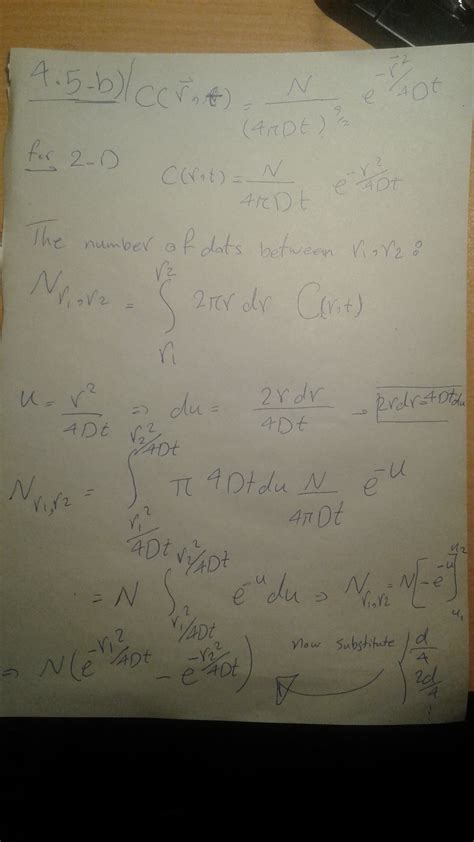 4.5-b) C(r⃗,t) = N/(4πDt)^(9/2) e^(-r⃗²/4Dt)
for 2-D C(r,t) = N/4πDt e^(-r²/4Dt)
The number of dots between r₁,r₂ :
N_(r₁,r₂) = ∫_(r₁)^(r₂) 2πr dr C(r,t)
u = r²/4Dt ⇒ du = 2rdr/4Dt → 2rdr=4Dtdu
N_(r₁,r₂) = ∫_(r₁²/4Dt)^(r₂²/4Dt) π 4Dtdu N/4πDt e^(-u)
= N ∫_(r₁²/4Dt)^(r₂²/4Dt) e^(-u) du ⇒ N_(r₁,r₂) = N[-e^(-u)]_(u₁)^(u₂)
⇒ N(e^(-r₁²/4Dt) - e^(-r₂²/4Dt)) now substitute { d/4
2d/4
⋮